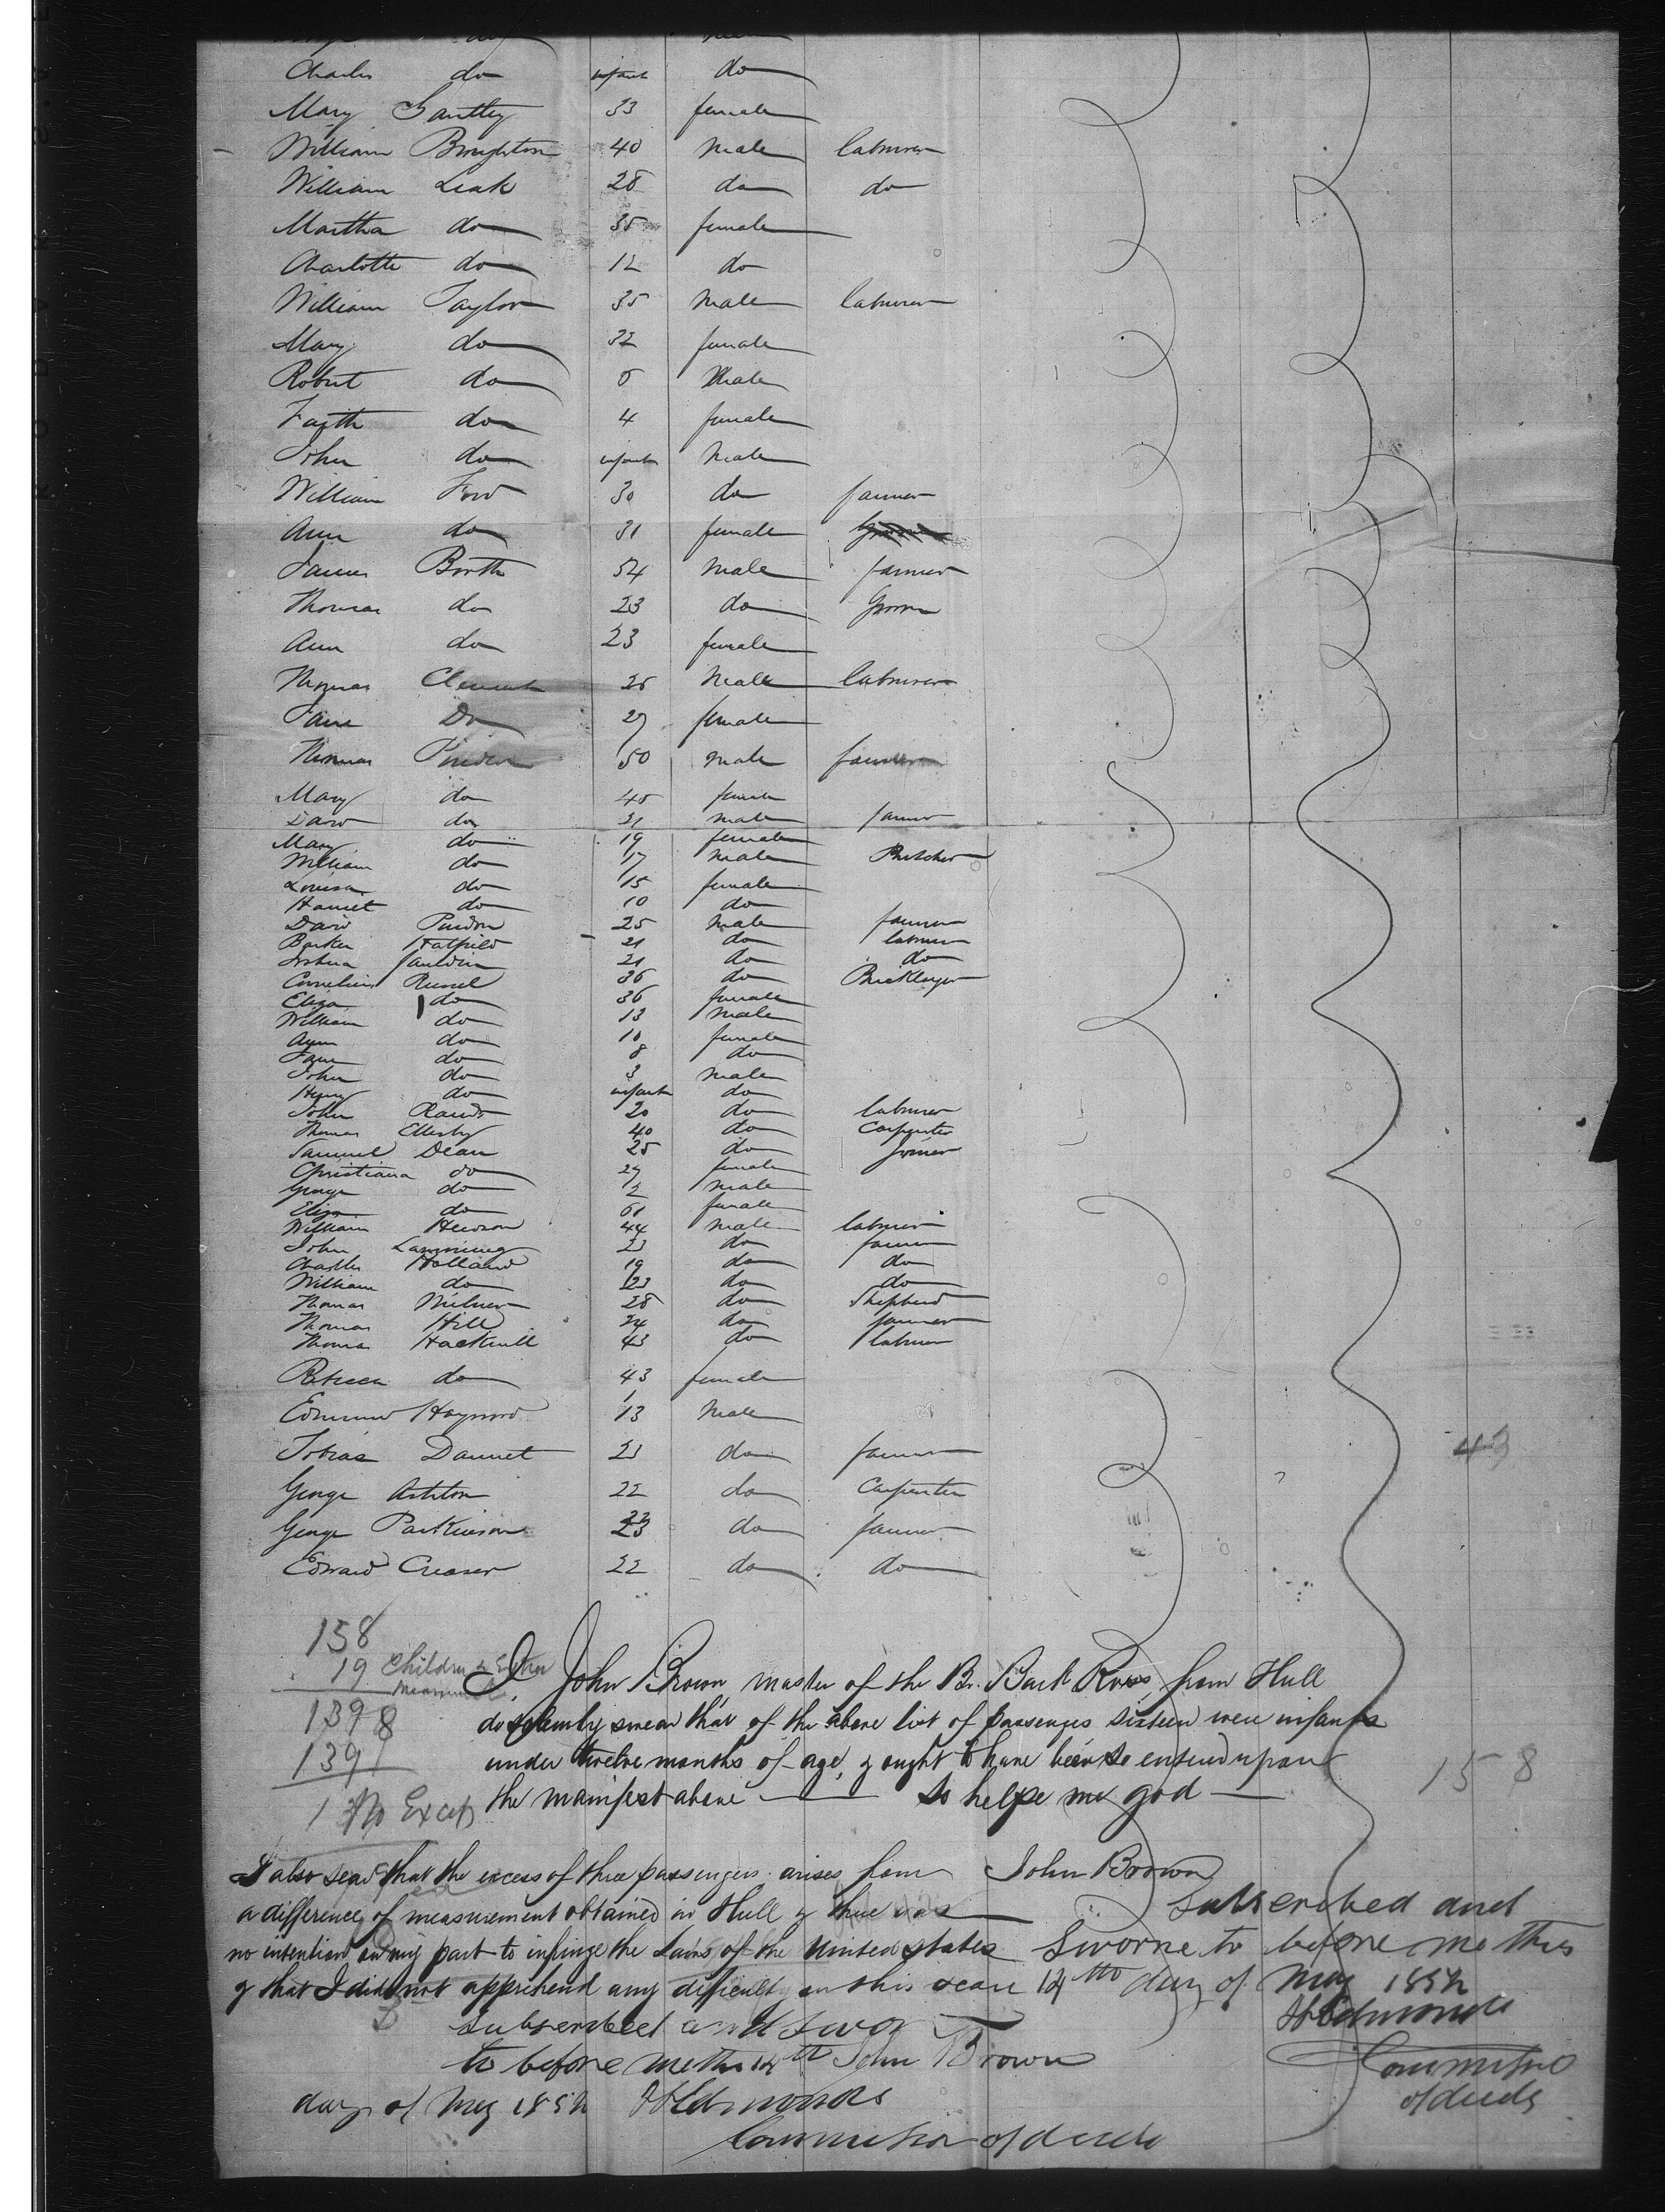 Charles do infant do
Mary Santley 33 female
William Broughton 40 Male labourer
William Leak 28 do do
Martha do 35 female
Charlotte do 12 do
William Taylor 35 Male labourer
Mary do 32 female
Robert do Male
Faith do 4 female
John do infant Male
William Ford 30 do farmer
Ann do 31 female
James Booth 54 Male farmer
Thomas do 23 do Groom
Ann do 23 female
Thomas Clement 26 Male labourer
Jane Do 27 female
Thomas 50 male farmer
Mary do 45 female
David do 31 male farmer
Mary do 19 female
William do 17 male Butcher
Louisa do 15 female
Harriet do 10 do
David 25 male farmer
Barker Hatfield 21 do labourer
Joshua 21 do do
Cornelius Russel 36 do Bricklayer
Eliza do 36 female
William do 13 Male
Ann do 10 female
Jane do 8 do
John do 3 male
Henry do infant do
John Rands 20 do labourer
Thomas Ellerby 40 do Carpenter
Samuel Dean 25 do Joiner
Christiana do 27 female
George do 2 male
Eliza do 61 female
William Hewson 44 male labourer
John Lamming 23 do farmer
Charles Holland 19 do do
William do 23 do do
Thomas Milner 28 do Shepherd
Thomas Hill 24 do farmer
Thomas 43 do labourer
Rebecca do 43 female
Edmund 13 Male
Tobias Dannet 23 do farmer
43
George Ashton 22 do Carpenter
George Parkinson 23 do farmer
Edward Creaser 22 do do
158
19 Children
139 8
139
1 No Except
I, John Brown, master of the Br. Bark Ross, from Hull
do solemnly swear that of the above list of passengers sixteen were infants
under twelve months of age, & ought to have been so entered upon
the manifest above — So helpe me god —
158
I also swear that the excess of three passengers arises from
a difference of measurement obtained in Hull & there was
no intention on my part to infringe the Laws of the United states
& that I did not apprehend any difficulty on this score
John Brown
Subscribed and
Sworne to before me this
14th day of May 1852
H Edmonds
Commissioner
of deeds
Subscribed and Swor
to before me this 14th John Brown
day of May 1852 H Edmonds
Commission of deeds